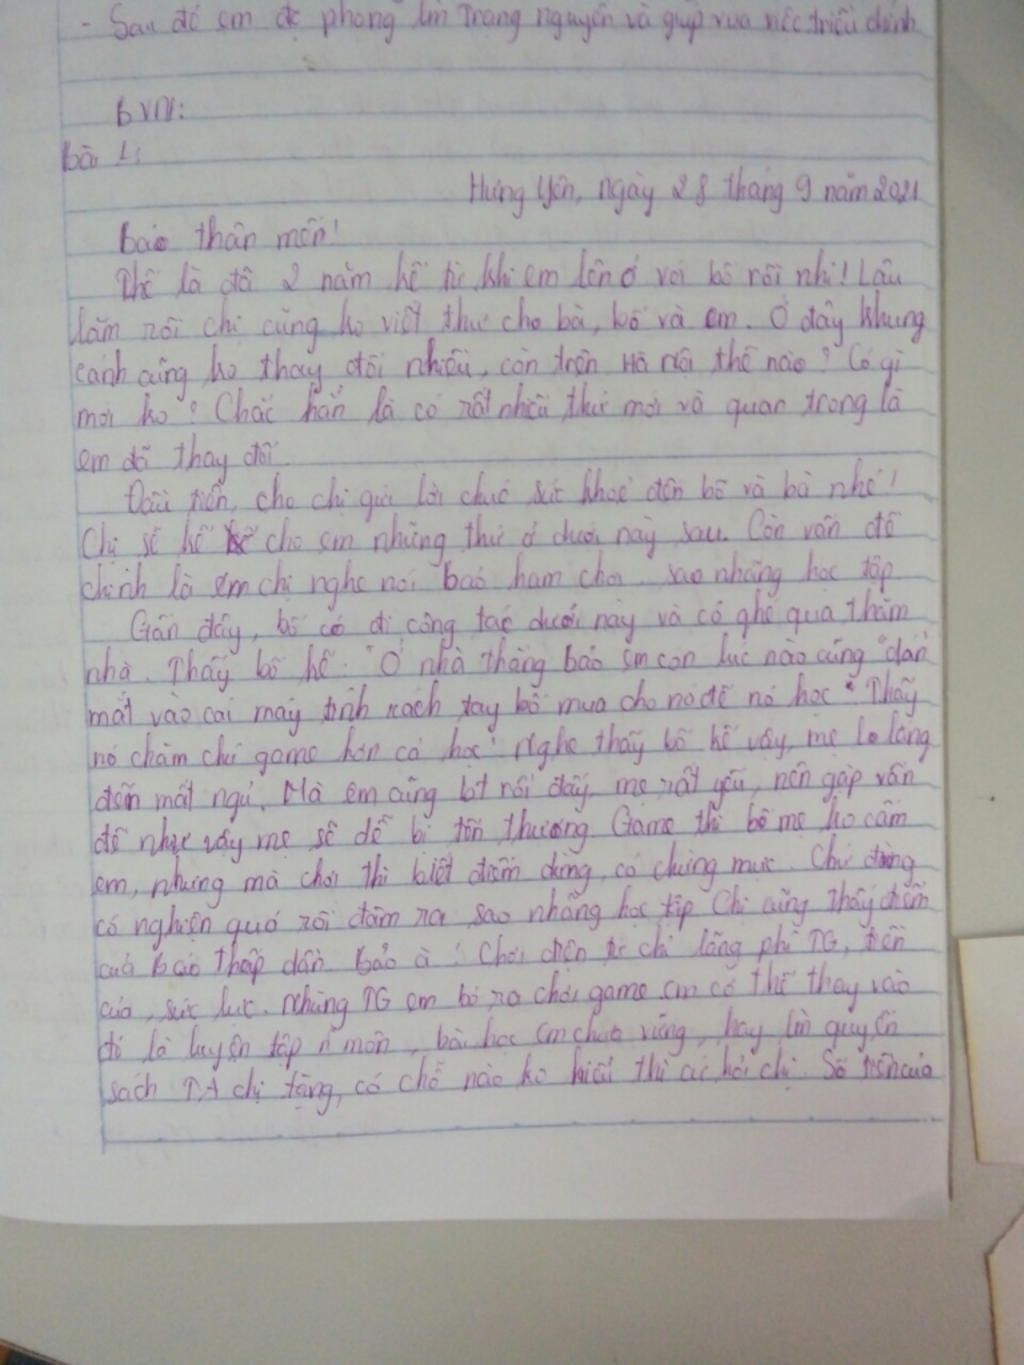 - Sau đó em đc phong làm Trạng nguyên và giúp vua việc triều chính
BVN:
Bài 1:
Hưng Yên, ngày 28 tháng 9 năm 2021
Bảo thân mến!
Thế là đã 2 năm kể từ khi em lên ở với bố rồi nhỉ! Lâu
lắm rồi chị cũng ko viết thư cho bà, bố và em. Ở đây khung
cảnh cũng ko thay đổi nhiều, còn trên Hà Nội thế nào? Có gì
mới ko? Chắc hẳn là có rất nhiều thứ mới và quan trọng là
em đã thay đổi.
Đầu tiên, cho chị gửi lời chúc sức khoẻ đến bố và bà nhé!
Chị sẽ kể cho em những thứ ở dưới này sau. Còn vấn đề
chính là em chị nghe nói Bảo ham chơi sao nhãng học tập
Gần đây, bố có đi công tác dưới này và có ghé qua thăm
nhà. Thấy bố kể: "Ở nhà thằng Bảo em con lúc nào cũng "dán
mắt vào cái máy tính xách tay bố mua cho nó để nó học". Thấy
nó chăm chú game hơn cả học" Nghe thấy bố kể vậy, mẹ lo lắng
đến mất ngủ. Mà em cũng bt rồi đấy mẹ rất yếu, nên gặp vấn
đề như vậy mẹ sẽ dễ bị tổn thương Game thì bố mẹ ko cấm
em, nhưng mà chơi thì biết điểm dừng, có chừng mực. Chứ đừng
có nghiện quá rồi đâm ra sao nhãng học tập Chị cũng thấy điểm
của Bảo thấp dần Bảo ạ! Chơi điện tử chỉ lãng phí TG, tiền
của, sức lực. Những TG em bỏ ra chơi game em có thể thay vào
đó là luyện tập n môn, bài học em chưa vững, hay làm quyển
sách TA chị tặng, có chỗ nào ko hiểu thì cứ hỏi chị. Số tiền của